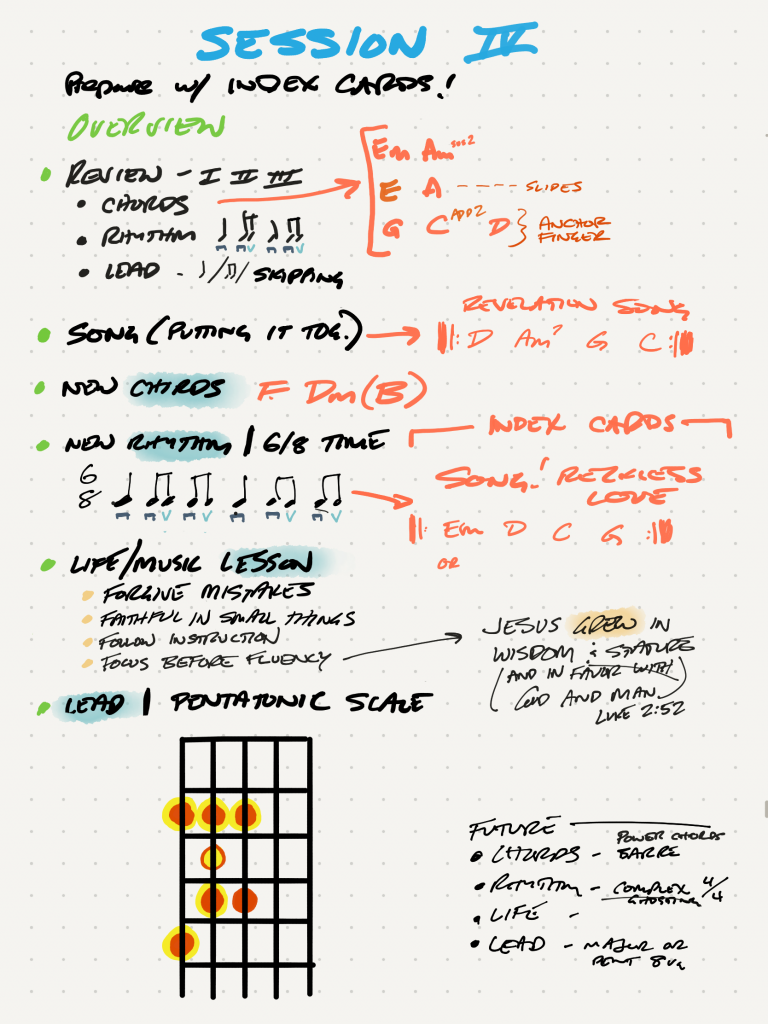 SESSION IV
Prepare w/ INDEX CARDS!
OVERVIEW
REVIEW - I II III
CHORDS
RHYTHM
LEAD - / / SKIPPING
Em Amsus2
E A ----- SLIDES
G CADD2 D } ANCHOR
FINGER
SONG (PUTTING IT TOG.)
REVELATION SONG
||: D Am7 G C :||
NEW CHORDS F Dm (B)
NEW RHYTHM | 6/8 TIME
INDEX CARDS
6
8
SONG! RECKLESS
LOVE
||: Em D C G :||
OR
LIFE/MUSIC LESSON
FORGIVE MISTAKES
FAITHFUL IN SMALL THINGS
FOLLOW INSTRUCTION
FOCUS BEFORE FLUENCY
JESUS GREW IN
WISDOM & STATURE
(AND IN FAVOR WITH
GOD AND MAN)
LUKE 2:52
LEAD | PENTATONIC SCALE
FUTURE
POWER CHORDS
CHORDS - BARRE
RHYTHM - COMPLEX 4/4
GHOSTING
LIFE -
LEAD - MAJOR OR
PENT 8va